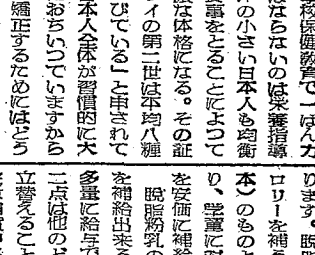 校保健教育で一ばん力
はならないのは栄養指導
の小さい日本人も均衡
事をとることによつて
な体格になる。その証
イの第二世は平均八糎
びている」と申されて
本人全体が習慣的に大
おちいつていますから
矯正するためにはどう
ります。脱脂
ロリーを補う
本）のものと
り、学童に対
を安価に補給
脱脂粉乳の
を補給出来る
多量に給与で
二点は他のど
立替えること